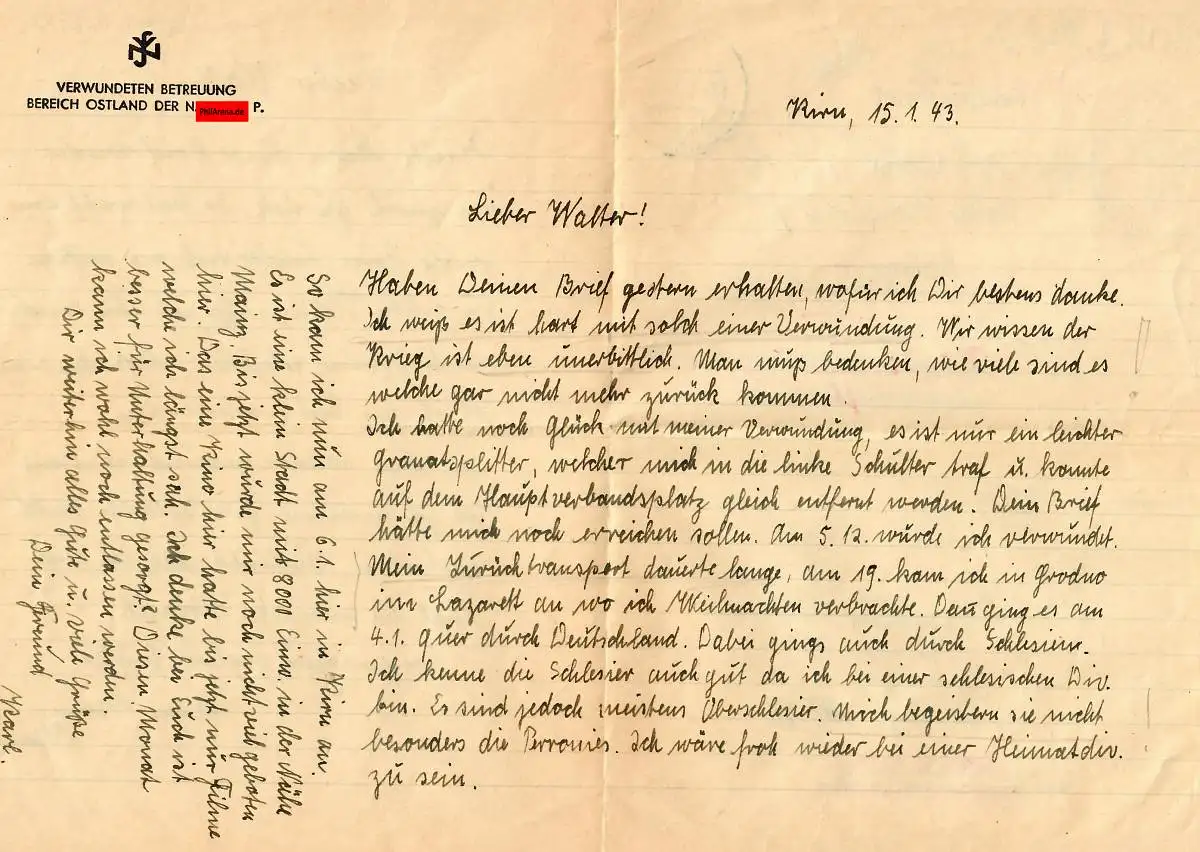 VERWUNDETEN BETREUUNG
BEREICH OSTLAND DER N
PhilArena.de
P.
Kirn, 15.1.43.
Lieber Walter!
Haben Deinen Brief gestern erhalten, wofür ich Dir bestens danke.
Ich weiß es ist hart mit solch einer Verwundung. Wir wissen der
Krieg ist eben unerbittlich. Man muß bedenken, wie viele sind es
welche gar nicht mehr zurück kommen.
Ich hatte noch Glück mit meiner Verwundung, es ist nur ein leichter
Granatsplitter, welcher mich in die linke Schulter traf u. konnte
auf dem Hauptverbandsplatz gleich entfernt werden. Dein Brief
hätte mich noch erreichen sollen. Am 5.12. wurde ich verwundet.
Mein Zurücktransport dauerte lange, am 19. kam ich in Grodno
im Lazarett an wo ich Weihnachten verbrachte. Dan ging es am
4.1. quer durch Deutschland. Dabei gings auch durch Schlesien.
Ich kenne die Schlesier auch gut da ich bei einer schlesischen Div.
bin. Es sind jedoch meistens Oberschlesier. Mich begeistern sie nicht
besonders die Perronies. Ich wäre froh wieder bei einer Heimatdiv.
zu sein.
So kam ich nun am 6.1. hier in Kirn an.
Es ist eine kleine Stadt mit 8000 Einw. in der Nähe
Mainz. Bis jetzt wurde mir noch nicht viel geboten
hier. Das eine Kino hier hatte bis jetzt nur Filme
welche ich längst sah. Ich denke bei Euch ist
besser für Unterhaltung gesorgt? Diesen Monat
kann ich wohl noch entlassen werden.
Dir weiterhin alles Gute u. viele Grüße
Dein Freund
Karl.